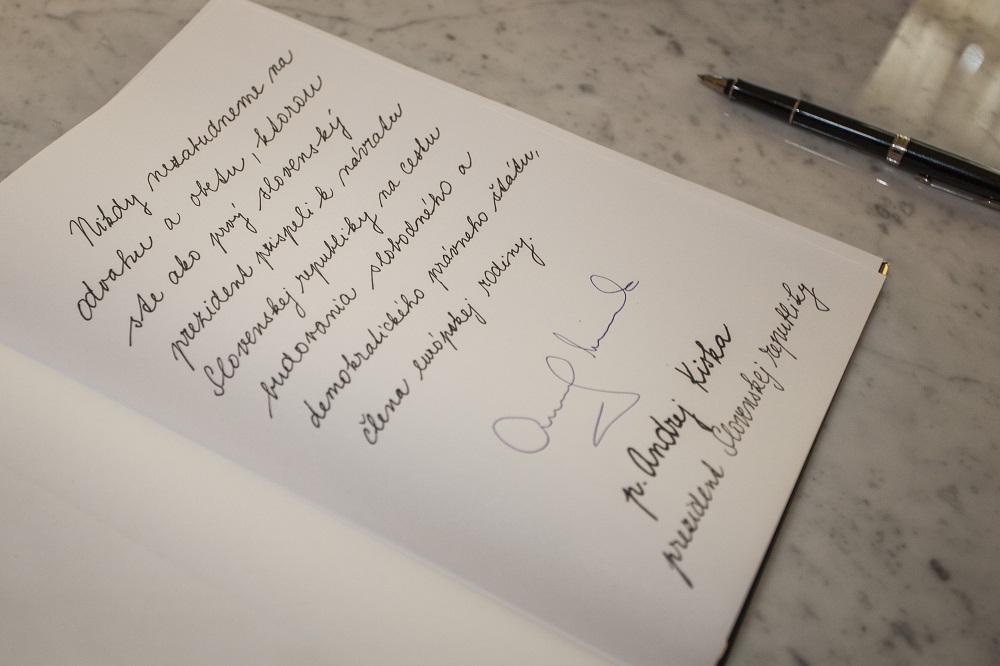 Nikdy nezabudneme na
odvahu a obetu, ktorou
ste ako prvý slovenský
prezident prispeli k návratu
Slovenskej republiky na cestu
budovania slobodného a
demokratického právneho štátu,
člena európskej rodiny.
p. Andrej Kiska
prezident Slovenskej republiky